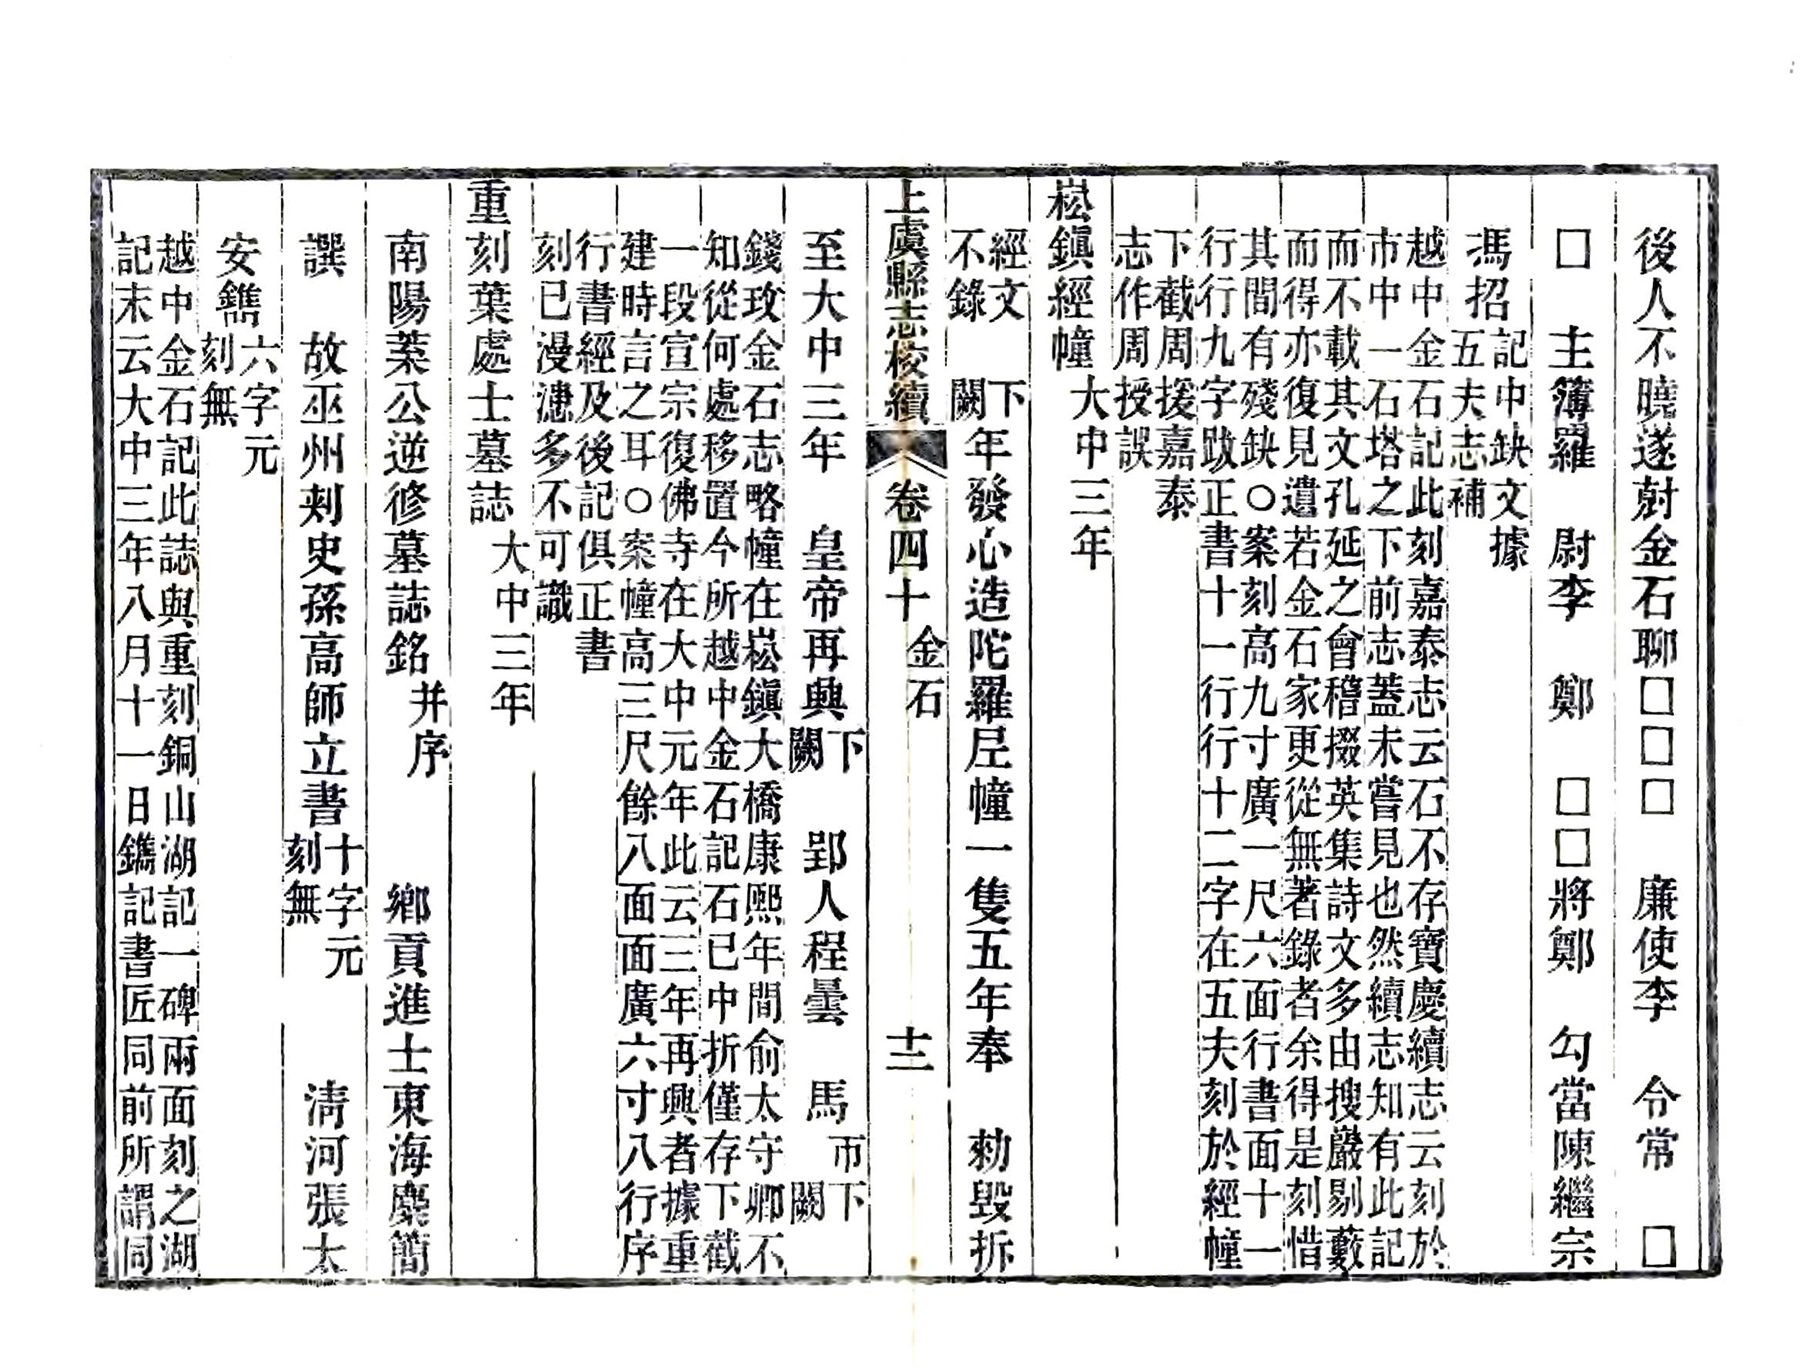 後人不曉遂尌金石聊□□□　廉使李　令常　□
□　主簿羅　尉李　鄭　□□將鄭　勾當陳繼宗
馮招
記中缺文據
五夫志補
越中金石記此刻嘉泰志云石不存寶慶續志云刻於
市中一石塔之下前志蓋未嘗見也然續志知有此記
而不載其文孔延之會稽掇英集詩文多由搜巖剔藪
而得亦復見遺若金石家更從無著錄者余得是刻惜
其間有殘缺○案刻高九寸廣一尺六面行書面十一
行行九字跋正書十一行行十二字在五夫刻於經幢
下截周援嘉泰
志作周授誤
崧鎮經幢　大中三年
經文
不錄
下
闕
年發心造陀羅尼幢一隻五年奉　勑毀拆
上虞縣志校續　卷四十　金石　十二
至大中三年　皇帝再興下闕　郢人程曇　馬帀下闕
錢玫金石志略幢在崧鎮大橋康熙年間俞太守卿不
知從何處移置今所越中金石記石已中折僅存下截
一段宣宗復佛寺在大中元年此云三年再興者據重
建時言之耳○案幢高三尺餘八面面廣六寸八行序
行書經及後記俱正書
刻已漫漶多不可識
重刻葉處士墓誌　大中三年
南陽葉公逆修墓誌銘并序　鄉貢進士東海麋簡
譔　故巫州刾史孫高師立書
十字元
刻無
清河張太
安鐫
六字元
刻無
越中金石記此誌與重刻銅山湖記一碑兩面刻之湖
記末云大中三年八月十一日鐫記書匠同前所謂同